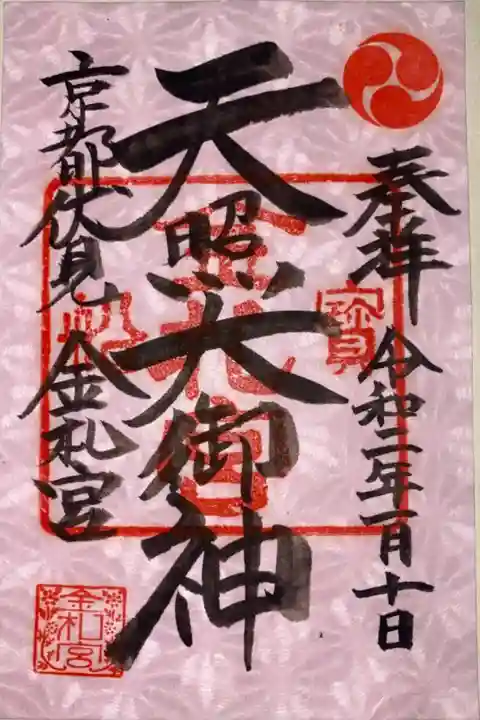 奉拝 令和二年一月十日
天照大御神
京都伏見 金札宮
金札宮
寳
金札宮